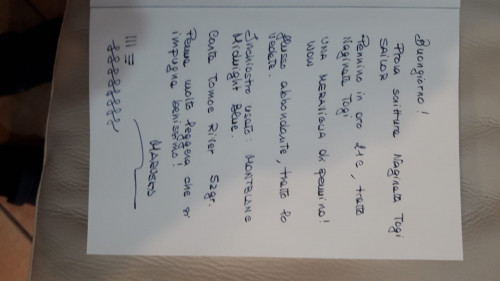 Buongiorno!
Prova scrittura Naginata Togi
SAILOR
Pennino in oro 21c, tratto
Naginata Togi
UNA MERAVIGLIA di pennino!
WOW
flusso abbondante, tratto lo
vedete.
Inchiostro usato: MONTBLANC
Midnight Blue.
Carta Tomoe River 52gr.
Penna molto leggera che si
impugna benissimo!